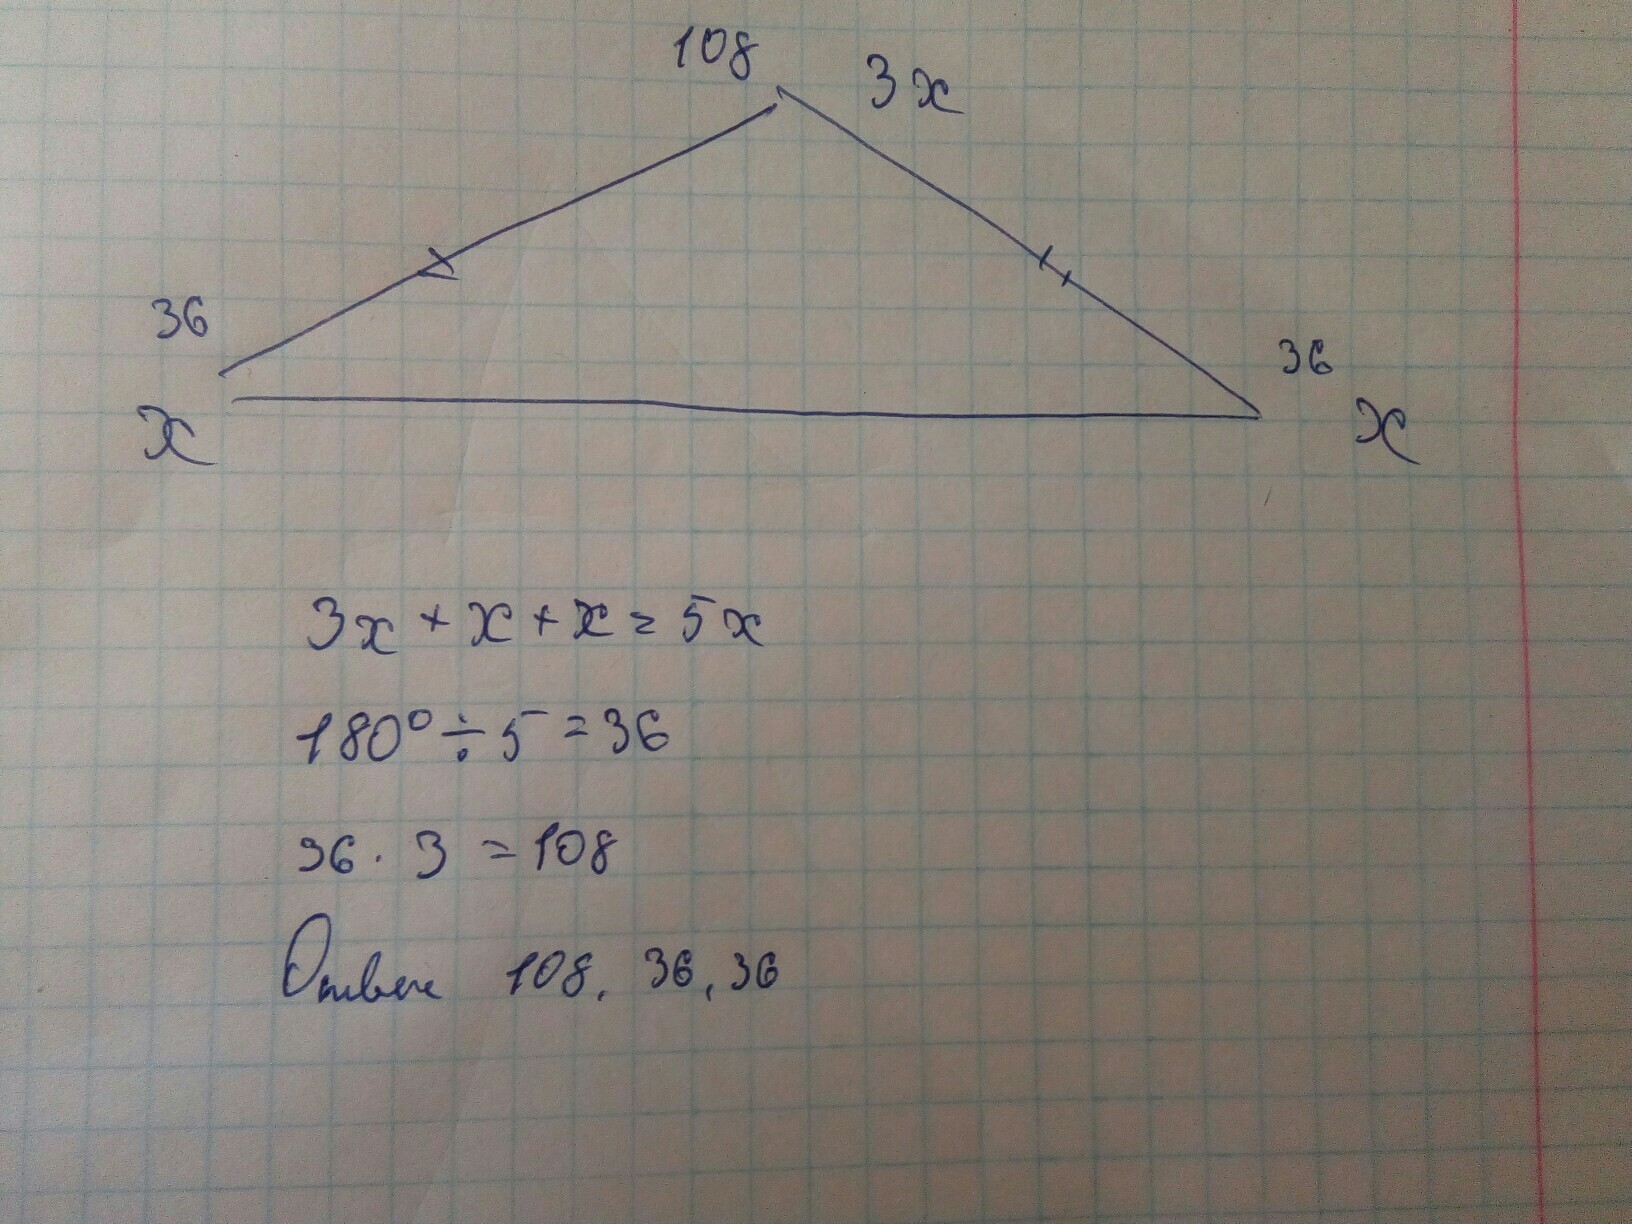 108
3x
36
36
x
x
3x + x + x = 5x
180° ÷ 5 = 36
36 · 3 = 108
Ответ 108, 36, 36